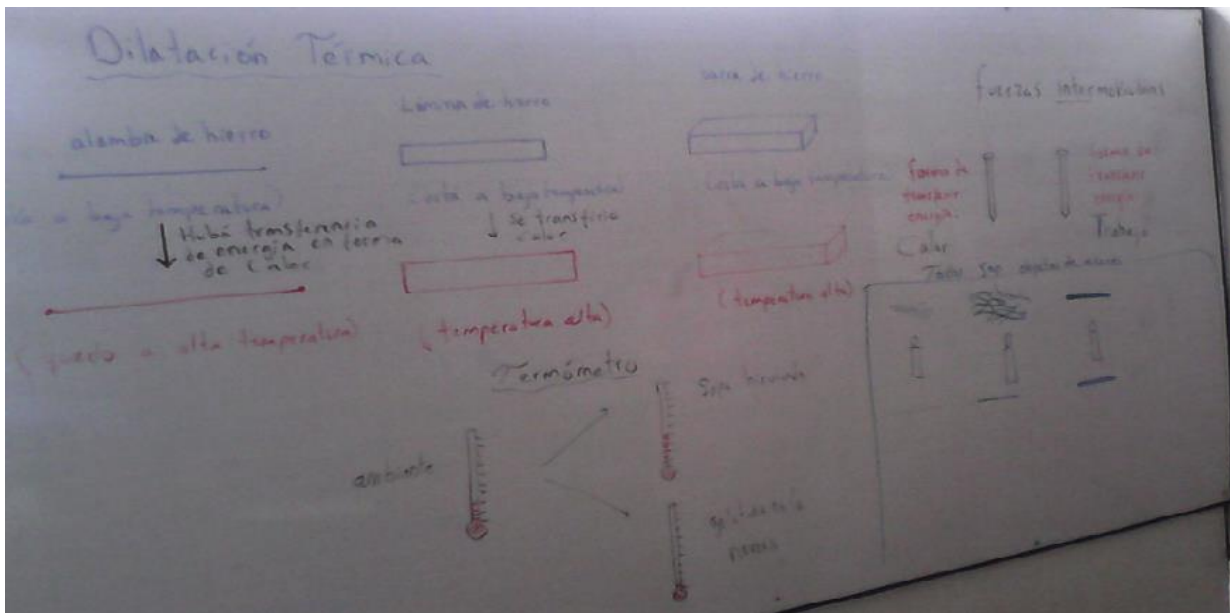 Dilatación Térmica
alambre de hierro
a baja temperatura)
Hubó transferencia
de energía en forma
de Calor
(quedo a alta temperatura)
Lámina de hierro
(está a baja temperatura)
Se transfirio
Calor
(temperatura alta)
barra de hierro
(está a baja temperatura)
(temperatura alta)
fuerzas intermoleculares
forma de
transferir
energía.
Calor
forma de
energía
Trabajo
Todos Son
Termómetro
ambiente
Sopa hirviendo